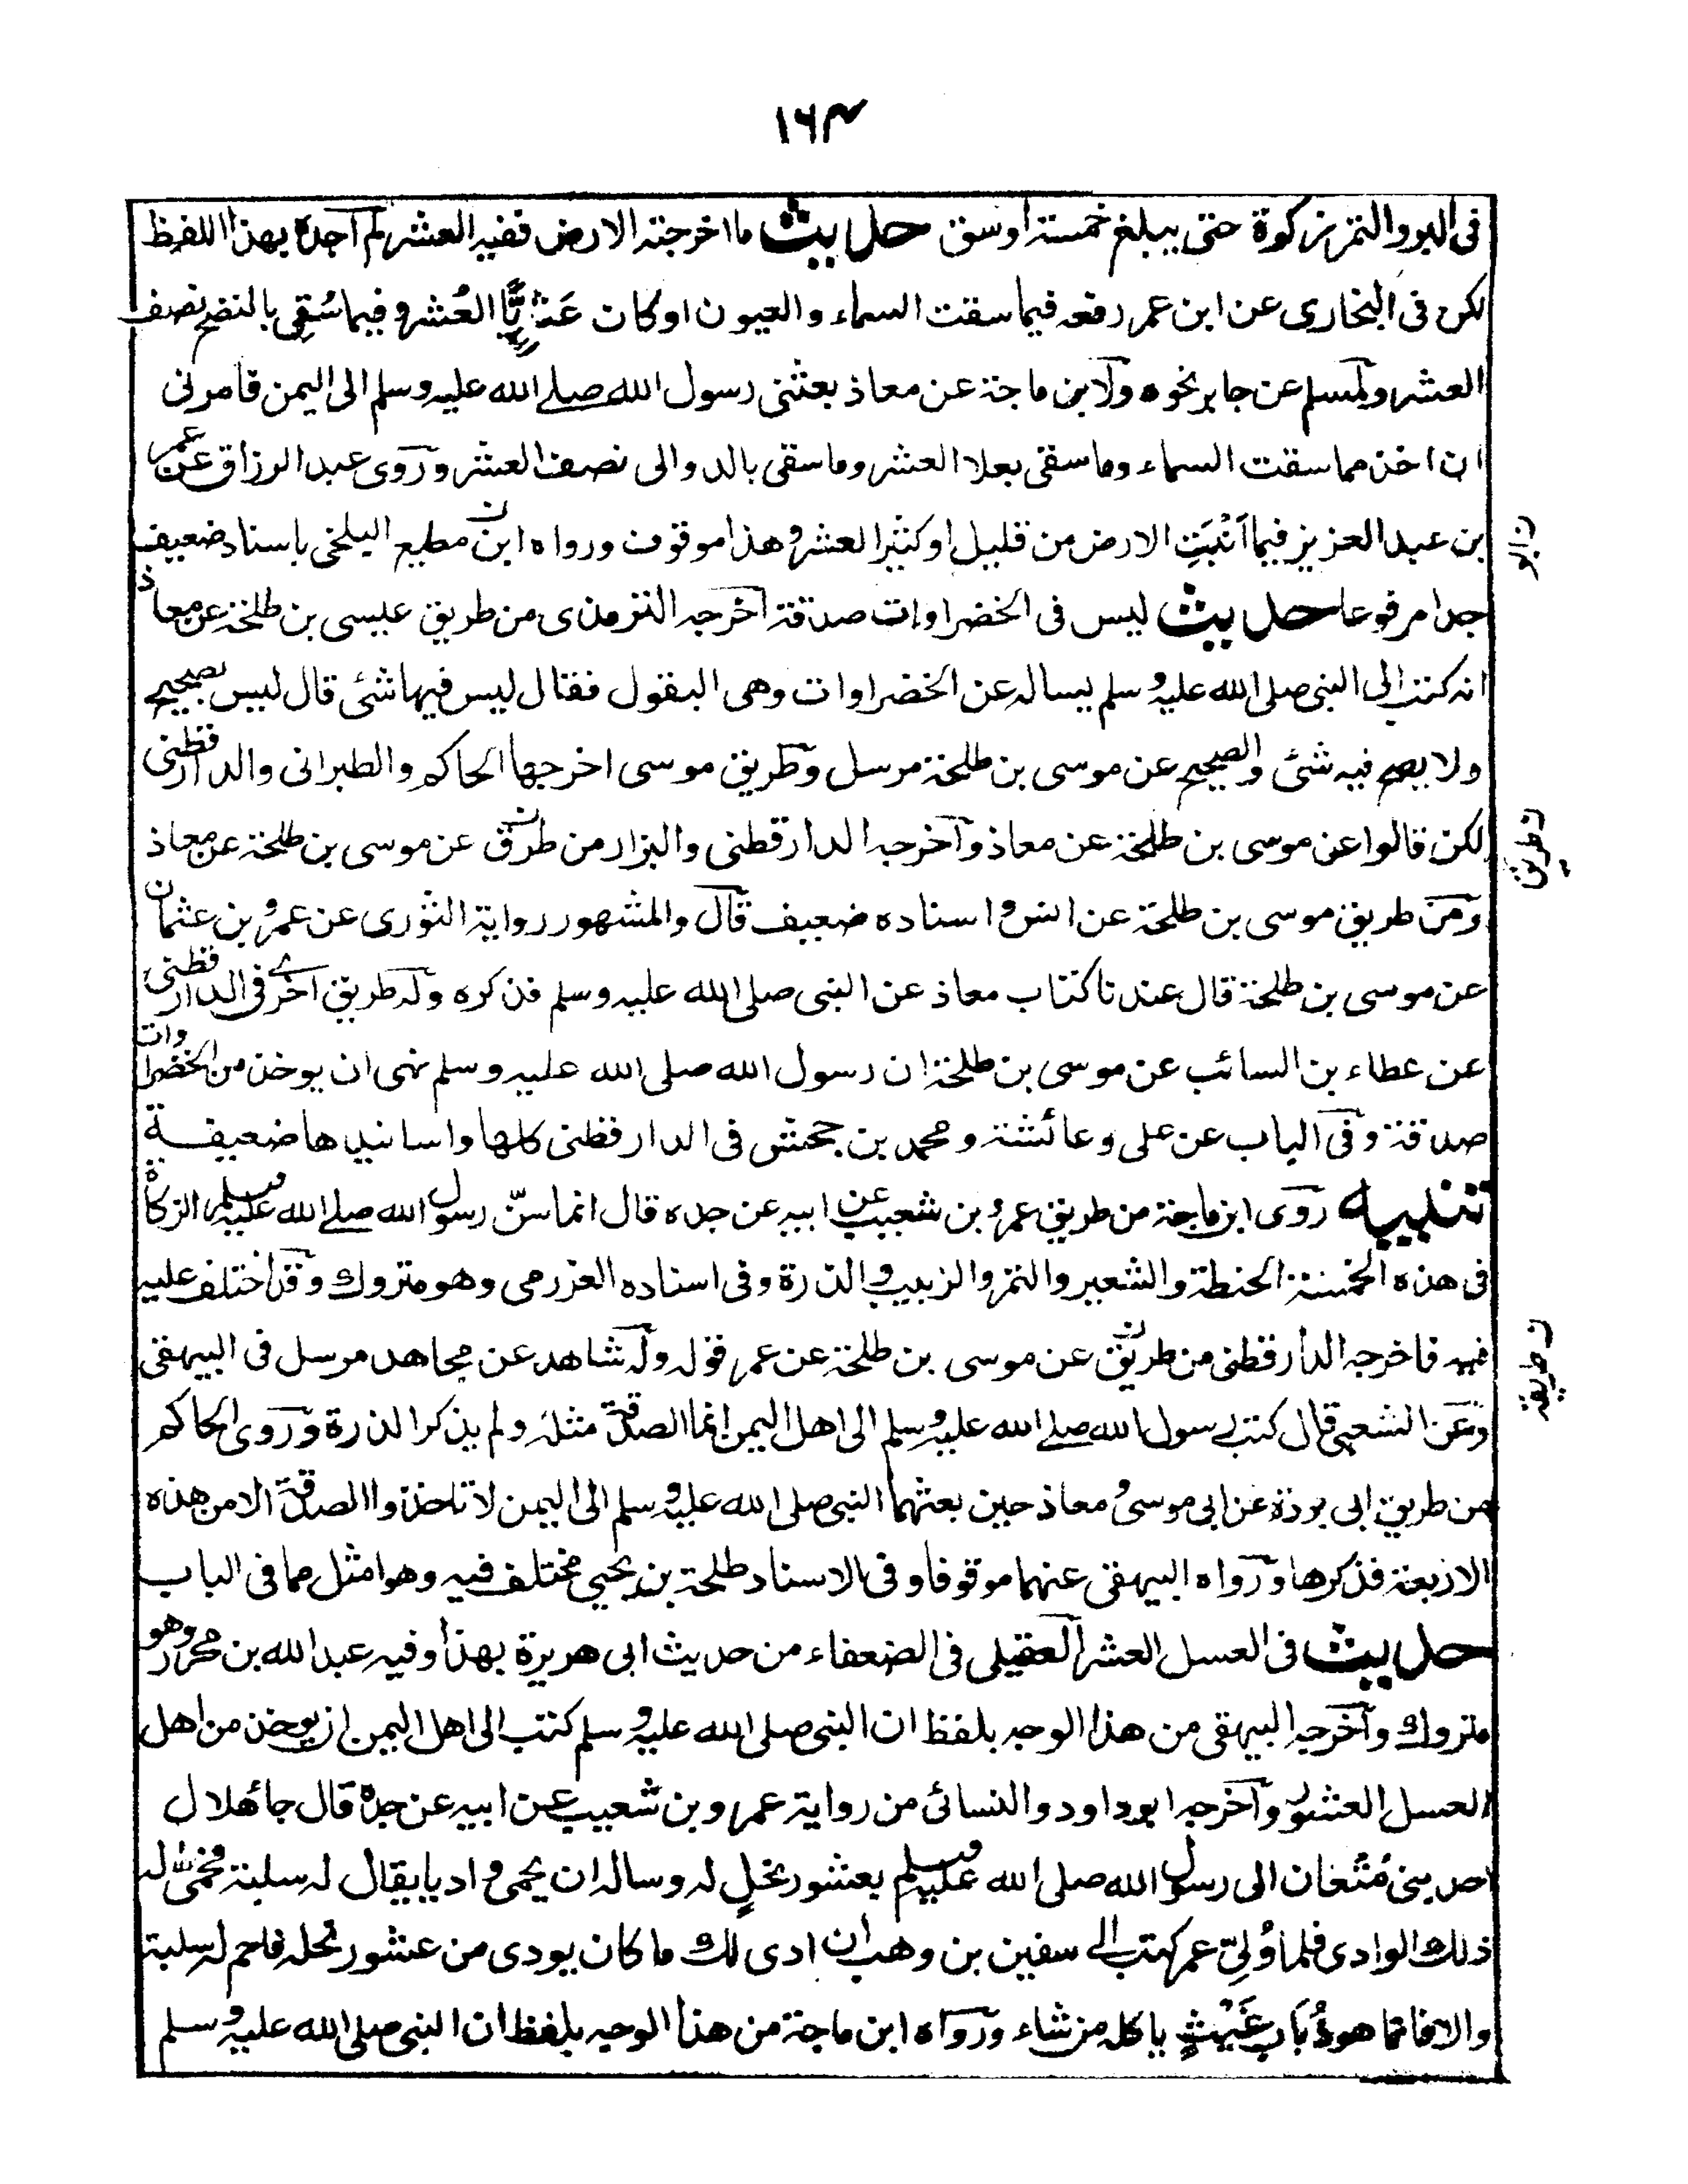 ١٦٣
فى البر والتمر زكوة حتى يبلغ خمسة اوسق حديث ما اخرجته الارض ففيه العشر لم اجده بهذا اللفظ
لكن فى البخارى عن ابن عمر رفعه فيما سقت السماء والعيون او كان عَثَرِيًّا العُشر وفيما سُقِى بالنضح نصف
العشر ولمسلم عن جابر نحوه ولابن ماجة عن معاذ بعثنى رسول الله صلے الله عليه وسلم الى اليمن فامرنى
ان اخذ مما سقت السماء وما سقى بعلا العشر وما سقى بالدوالى نصف العشر وروى عبد الرزاق عن عمر
بن عبد العزيز فيما اَنْبَتَتِ الارض من قليل او كثير العشر وهذا موقوف ورواه ابن مطيع البلخى باسناد ضعيف
جدا مرفوعا حديث ليس فى الخضراوات صدقة اخرجه الترمذى من طريق عيسى بن طلحة عن معاذ
انه كتب الى النبى صلى الله عليه وسلم يساله عن الخضراوات وهى البقول فقال ليس فيها شئ قال ليس بصحيح
ولا يصح فيه شئ والصحيح عن موسى بن طلحة مرسل وطريق موسى اخرجها الحاكم والطبرانى والدارقطنى
لكن قالوا عن موسى بن طلحة عن معاذ واخرجه الدارقطنى والبزار من طرق عن موسى بن طلحة عن معاذ
ومن طريق موسى بن طلحة عن انس واسناده ضعيف قال والمشهور رواية الثورى عن عمرو بن عثمان
عن موسى بن طلحة قال عندنا كتاب معاذ عن النبى صلى الله عليه وسلم فذكره وله طريق اخرے فى الدارقطنى
عن عطاء بن السائب عن موسى بن طلحة ان رسول الله صلى الله عليه وسلم نهى ان يوخذ من الخضراوات
صدقة وفى الباب عن على وعائشة ومحمد بن جحش فى الدارقطنى كلها واسانيدها ضعيفة
تنبيه روى ابن ماجة من طريق عمرو بن شعيب عن ابيه عن جده قال انما سنّ رسول الله صلے الله عليه وسلم الزكاة
فى هذه الخمسة الحنطة والشعير والتمر والزبيب والذرة وفى اسناده العزرمى وهو متروك وقد اختلف عليه
فيه فاخرجه الدارقطنى من طريق عن موسى بن طلحة عن عمر قوله وله شاهد عن مجاهد مرسل فى البيهقى
وعن الشعبى قال كتب رسول الله صلے الله عليه وسلم الى اهل اليمن انما الصدقة مثله ولم يذكر الذرة وروى الحاكم
من طريق ابى بردة عن ابى موسى ومعاذ حين بعثهما النبى صلى الله عليه وسلم الى اليمن لا تاخذوا الصدقة الا من هذه
الاربعة فذكرها ورواه البيهقى عنهما موقوفا وفى الاسناد طلحة بن يحيى مختلف فيه وهو امثل مما فى الباب
حديث فى العسل العشر العقيلى فى الضعفاء من حديث ابى هريرة بهذا وفيه عبد الله بن محرر وهو
متروك واخرجه البيهقى من هذا الوجه بلفظ ان النبى صلى الله عليه وسلم كتب الى اهل اليمن ان يوخذ من اهل
العسل العشور واخرجه ابو داود والنسائى من رواية عمرو بن شعيب عن ابيه عن جده قال جاء هلال
احد بنى مُتْعَان الى رسول الله صلى الله عليه وسلم بعشور نحلٍ له وساله ان يحمى واديا يقال له سلبة فحمى له
ذلك الوادى فلما وُلِىّ عمر كتب الے سفين بن وهب ان ادى لك ما كان يودى من عشور نحله فاحم له سلبة
والا فانما هو ذُبَابِ غَيْثٍ ياكله من شاء ورواه ابن ماجة من هذا الوجه بلفظ ان النبى صلى الله عليه وسلم
ن ابو
ن طريق
ن طريقه